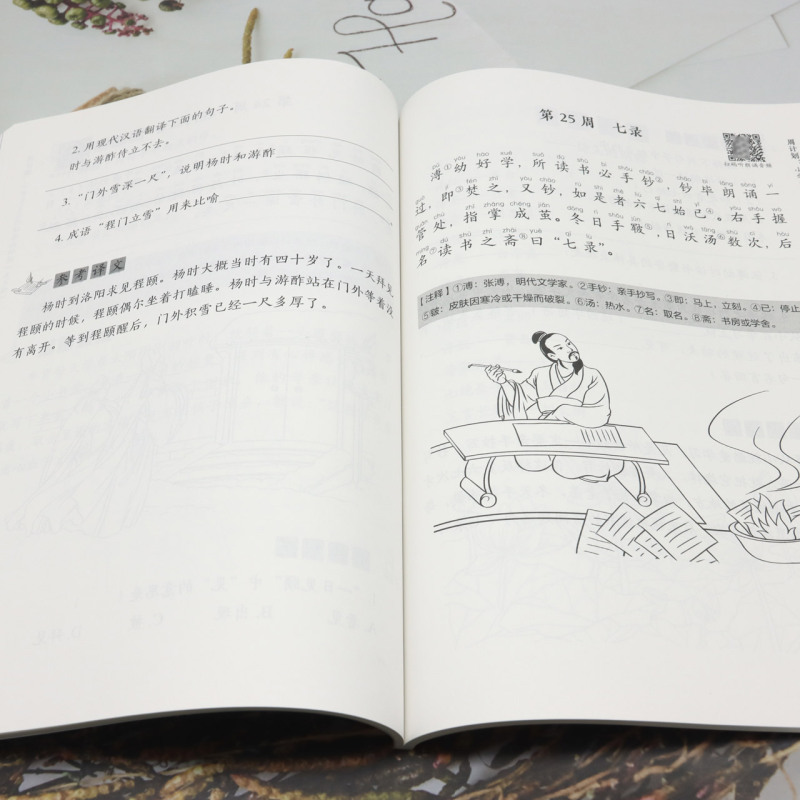 2. 用现代汉语翻译下面的句子。
时与游酢侍立不去。
3. “门外雪深一尺”，说明杨时和游酢
4. 成语“程门立雪”用来比喻
参考译文
杨时到洛阳求见程颐。杨时大概当时有四十岁了。一天拜见
程颐的时候，程颐偶尔坐着打瞌睡。杨时与游酢站在门外等着没
有离开。等到程颐醒后，门外积雪已经一尺多厚了。
第 25 周 七录
扫码听朗诵音频
周计划
溥①幼好学，所读书必手钞②，钞毕朗诵一
过，即③焚之，又钞，如是者六七始已④。右手握
管处，指掌成茧。冬日手皲⑤，日沃汤⑥数次，后
名⑦读书之斋⑧曰“七录”。
【注释】①溥：张溥，明代文学家。②手钞：亲手抄写。③即：马上，立刻。④已：停止
⑤皲：皮肤因寒冷或干燥而破裂。⑥汤：热水。⑦名：取名。⑧斋：书房或学舍。